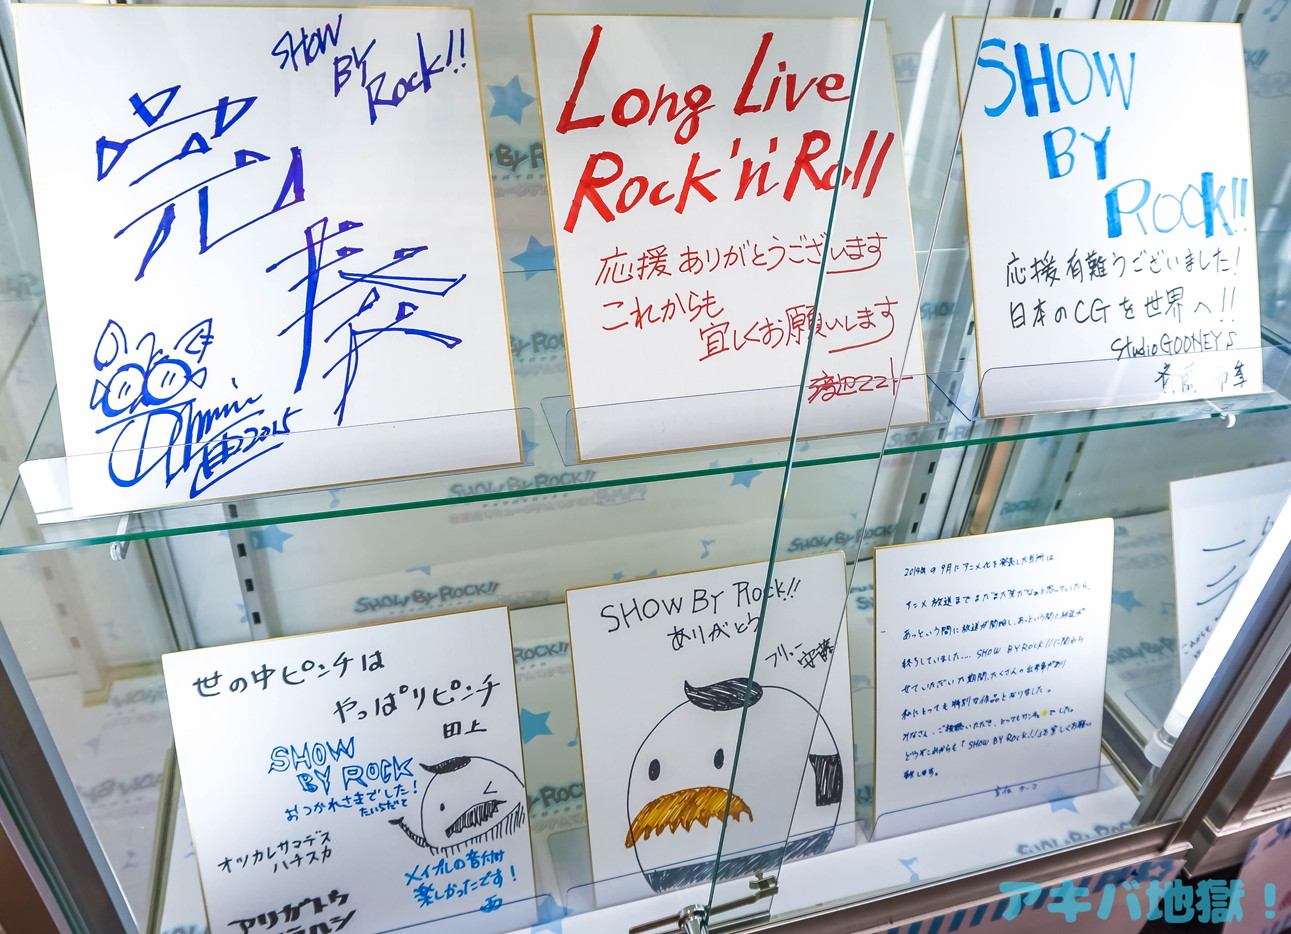 SHOW
BY
Rock!!
完
奏
2015
Long Live
Rock'n'Roll
応援ありがとうございます
これからも
宜しくお願いします
SHOW
BY
Rock!!
応援有難うございました!
日本のCGを世界へ!!
Studio GOONEYS
世の中ピンチは
やっぱりピンチ
田上
SHOW
BY ROCK
おつかれさまでした!
オツカレサマデス
ハチスカ
メイプルの音付け
楽しかったです!
アリガトウ
SHOW BY Rock!!
ありがとう
安藤
2014年の9月にアニメ化を発表した当所は
アニメ放送までまだまだ先だなぁと思っていたら、
あっという間に放送が開始し、あっという間に放送が
終了していました.... SHOW BY ROCK!!に関わら
せていただいた期間、たくさんの出来事があり
私にとっても特別な作品となりました。
みなさん、ご視聴いただき、とってもサンキューでした。
どうぞこれからも「SHOW BY ROCK!!」を宜しくお願い
致します。
SHOW BY ROCK!!
SHOW BY ROCK!!
SHOW BY ROCK!!
アキバ地獄!